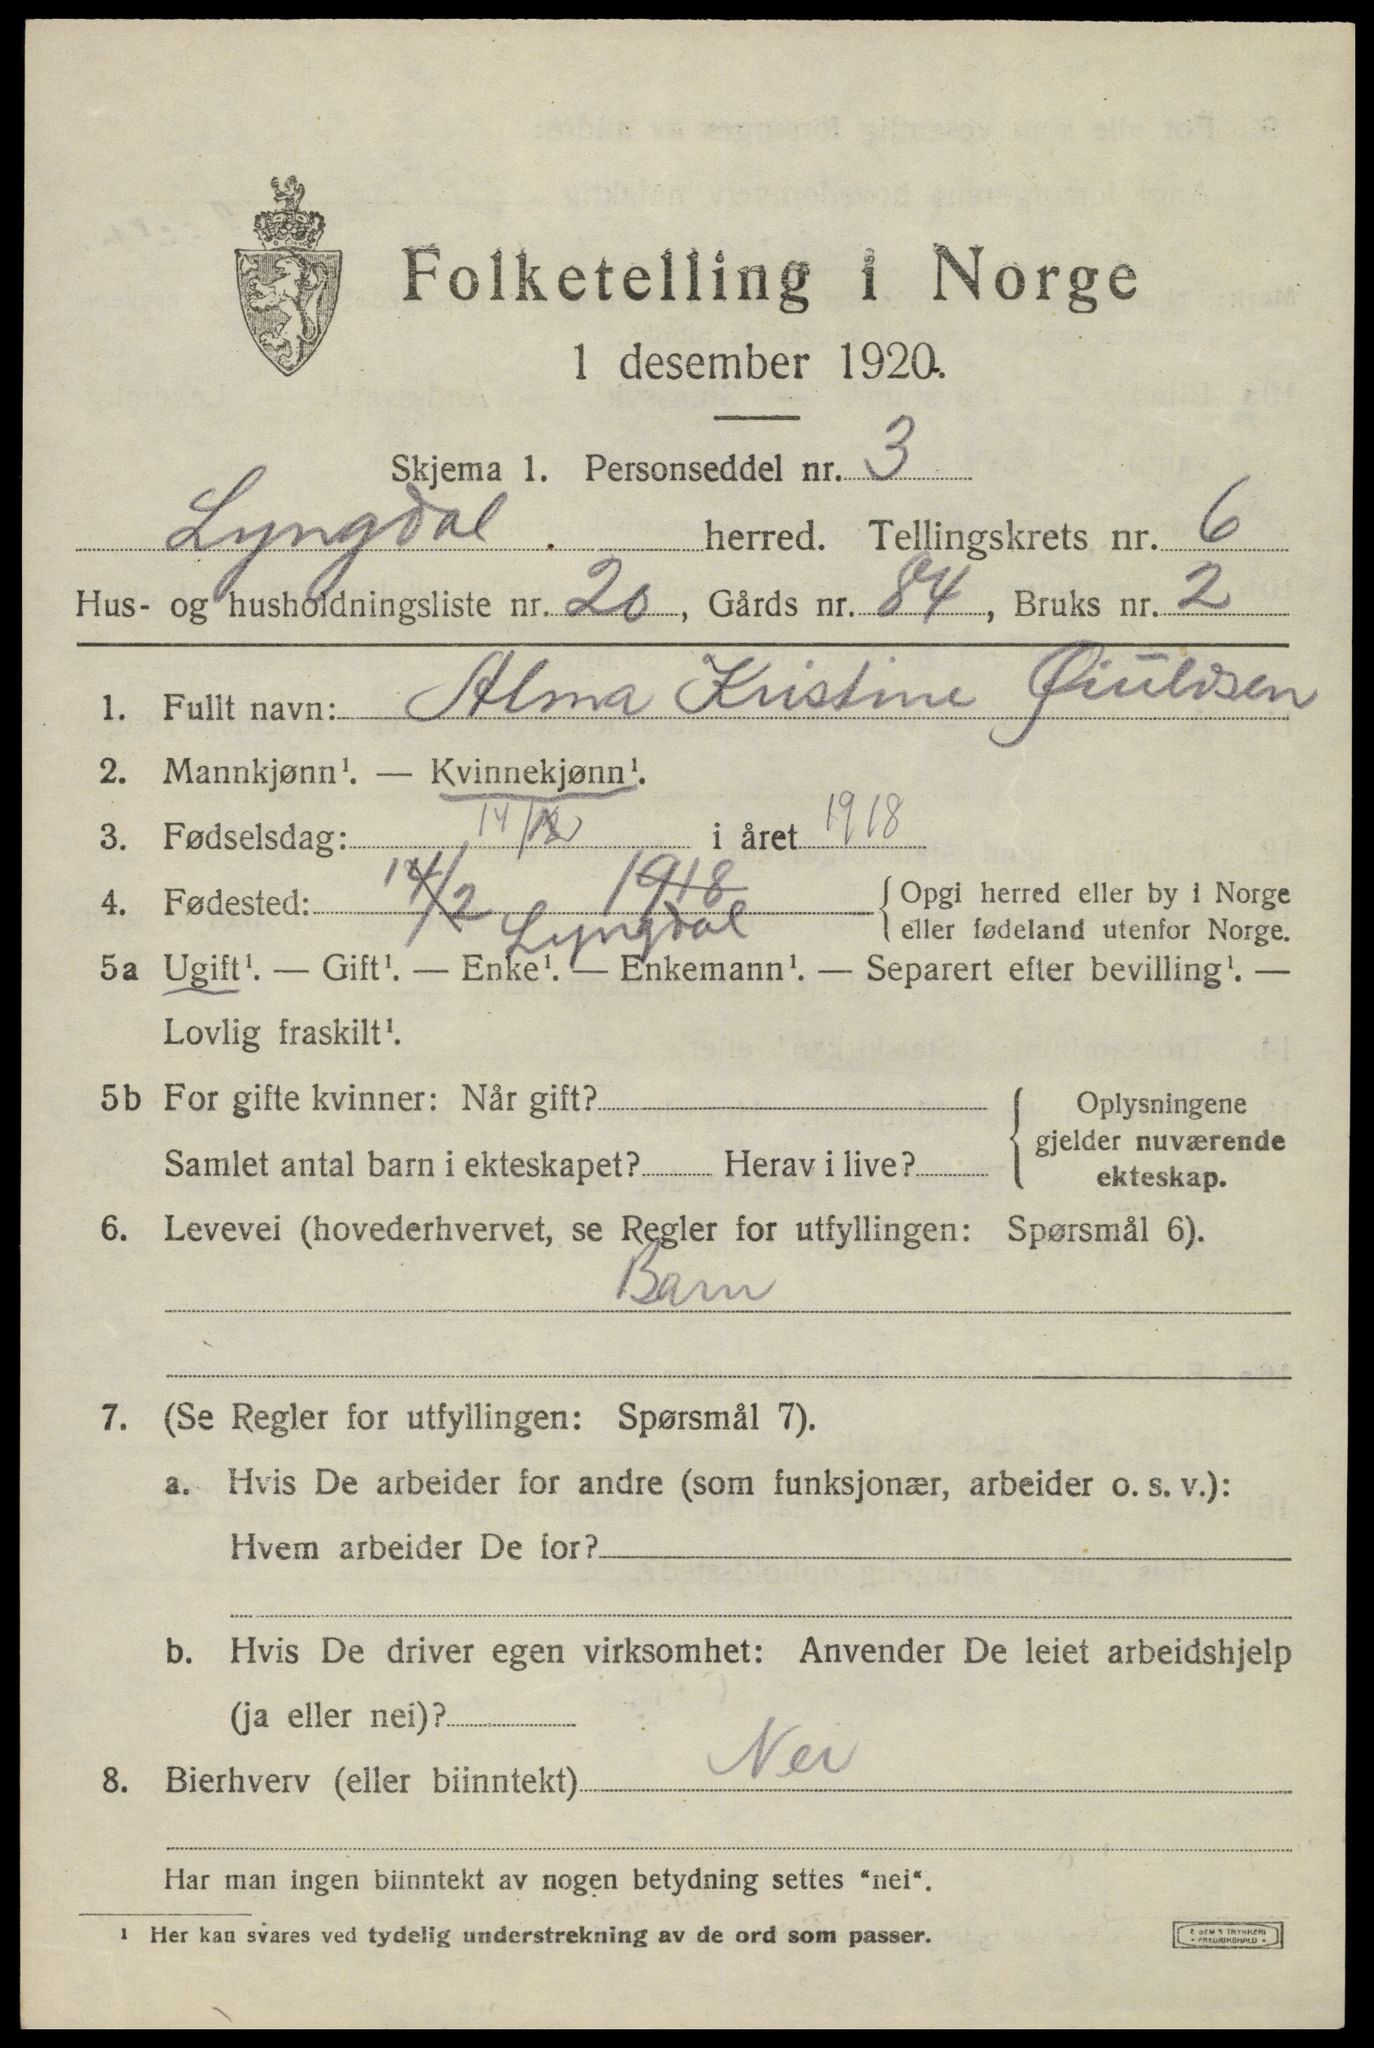 Folketelling i Norge
1 desember 1920.
Skjema 1. Personseddel nr. 3
Lyngdal herred. Tellingskrets nr. 6
Hus- og husholdningsliste nr. 20, Gårds nr. 84, Bruks nr. 2
1. Fullt navn: Alma Kristine
2. Mannkjønn¹. — Kvinnekjønn¹.
3. Fødselsdag: 14/2 i året 1918
4. Fødested: 14/2 1918 { Opgi herred eller by i Norge
Lyngdal eller fødeland utenfor Norge.
5a Ugift¹. — Gift¹. — Enke¹. — Enkemann¹. — Separert efter bevilling¹. —
Lovlig fraskilt¹.
5b For gifte kvinner: Når gift? Oplysningene
gjelder nuværende
Samlet antal barn i ekteskapet? Herav i live? ekteskap.
6. Levevei (hovederhvervet, se Regler for utfyllingen: Spørsmål 6).
Barn
7. (Se Regler for utfyllingen: Spørsmål 7).
a. Hvis De arbeider for andre (som funksjonær, arbeider o. s. v.):
Hvem arbeider De for?
b. Hvis De driver egen virksomhet: Anvender De leiet arbeidshjelp
(ja eller nei)?
8. Bierhverv (eller biinntekt) Nei
Har man ingen biinntekt av nogen betydning settes "nei".
¹ Her kan svares ved tydelig understrekning av de ord som passer.